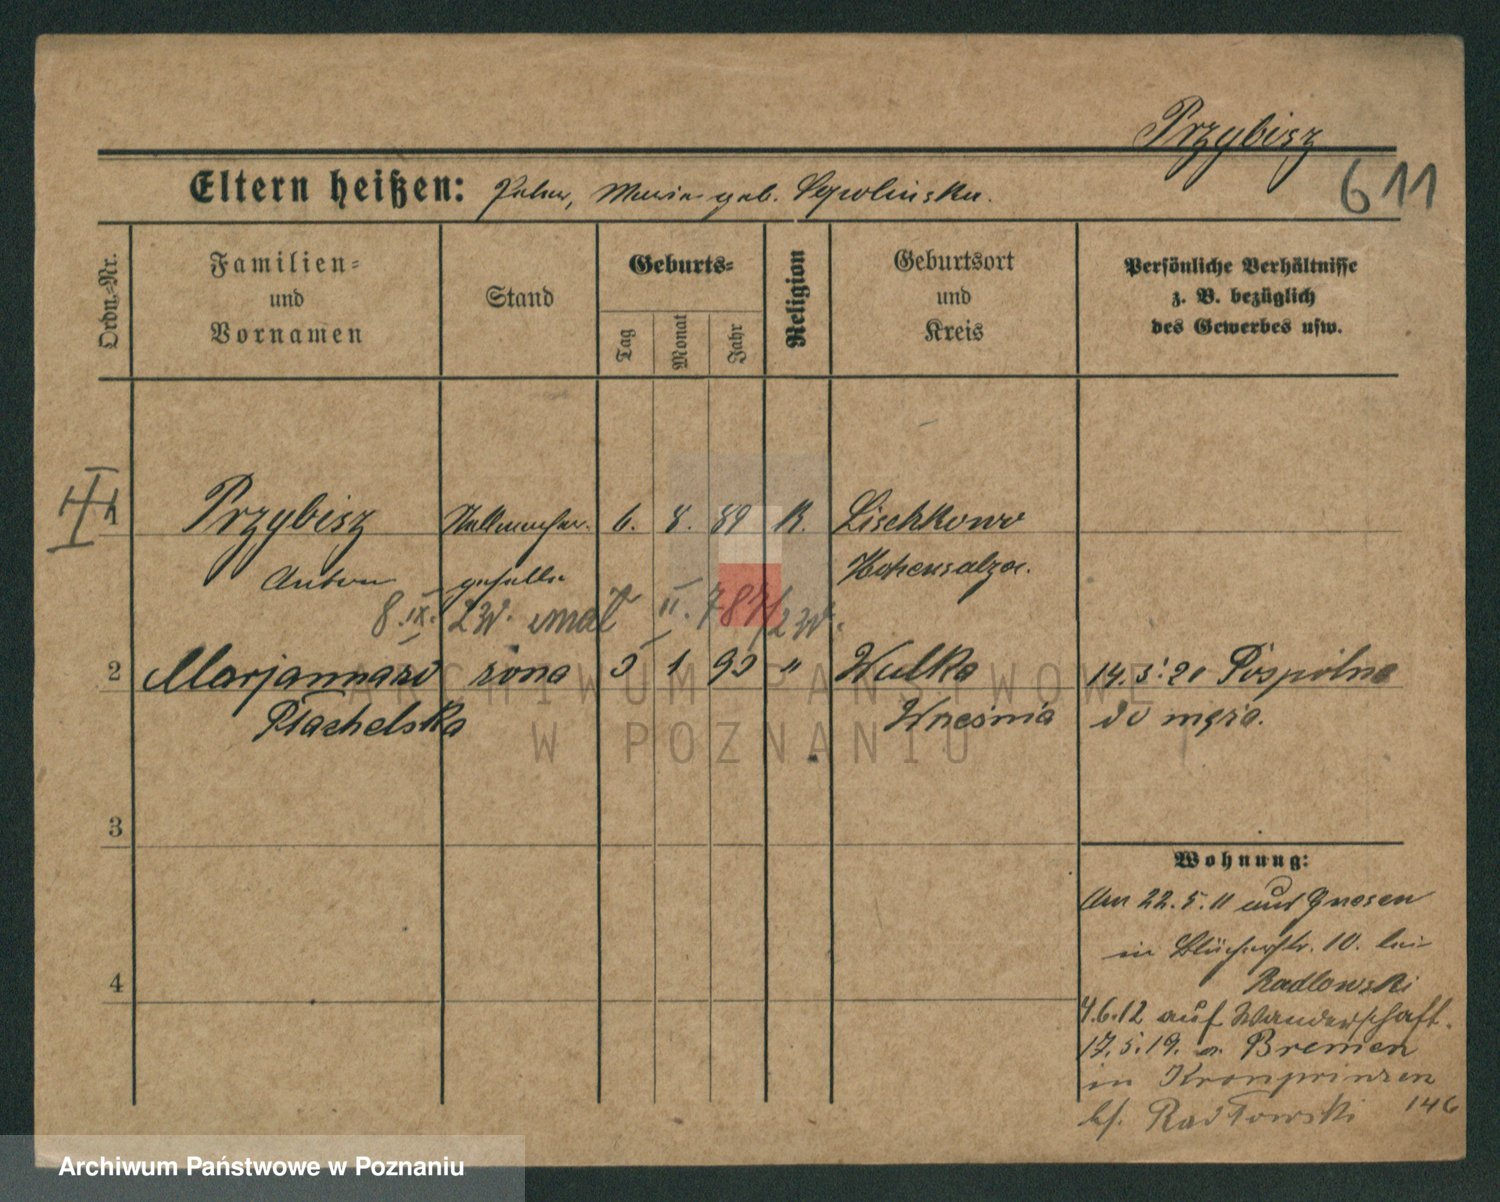 Przybisz
611
Eltern heißen: Peter, Marie geb. Sgolinska.
Ordn.-Nr.
Familien-
und
Vornamen
Stand
Geburts-
Tag
Monat
Jahr
Religion
Geburtsort
und
Kreis
Persönliche Verhältnisse
z. B. bezüglich
des Gewerbes usw.
1 Przybisz 6. 8. 89 K. Lischkowo
Anton geselle Hohensalza.
8. IX. zw. II. zw.
2 Marjanna żona 5 1 93 " Wulka 14.5.20 Pospólne
Ptachelska Września do męża.
3
4
Wohnung:
Am 22.5.11 aus Gnesen
in Blücherstr. 10. bei
Radlowski
4.6.12 auf Wanderschaft.
17.5.19. a. Bremen
in Kronprinzen 146
bf. Radłowski
ARCHIWUM PAŃSTWOWE
W POZNANIU
Archiwum Państwowe w Poznaniu